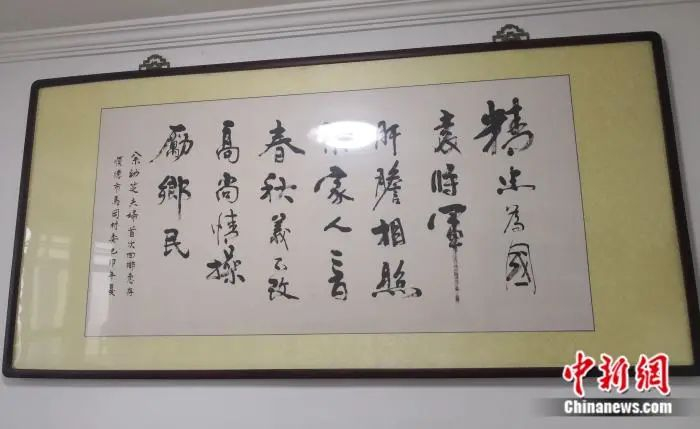 精忠為國
袁将軍
肝膽相照
家人三百
春秋義不改
高尚情操
勵鄉民
佘幼芝夫婦首次回鄉惠存
順德市馬岡村委己卯年夏
中新网
Chinanews.com